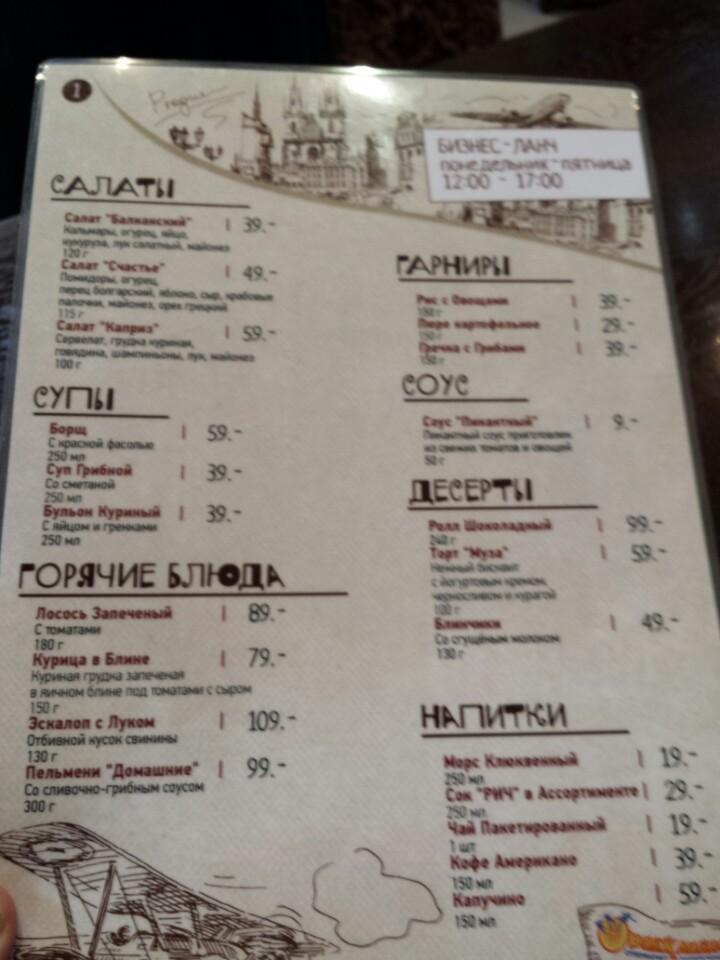 1
Prague
БИЗНЕС-ЛАНЧ
ПОНЕДЕЛЬНИК-ПЯТНИЦА
12:00 - 17:00
САЛАТЫ
Салат "Балканский" | 39.-
Кальмары, огурец, яйцо,
кукуруза, лук салатный, майонез
120 г
Салат "Счастье" | 49.-
Помидоры, огурец,
перец болгарский, яблоко, сыр, крабовые
палочки, майонез, орех грецкий
115 г
Салат "Каприз" | 59.-
Сервелат, грудка куриная,
говядина, шампиньоны, лук, майонез
100 г
СУПЫ
Борщ | 59.-
С красной фасолью
250 мл
Суп Грибной | 39.-
Со сметаной
250 мл
Бульон Куриный | 39.-
С яйцом и гренками
250 мл
ГОРЯЧИЕ БЛЮДА
Лосось Запеченый | 89.-
С томатами
180 г
Курица в Блине | 79.-
Куриная грудка запеченая
в яичном блине под томатами с сыром
150 г
Эскалоп с Луком | 109.-
Отбивной кусок свинины
130 г
Пельмени "Домашние" | 99.-
Со сливочно-грибным соусом
300 г
ГАРНИРЫ
Рис с Овощами | 39.-
150 г
Пюре картофельное | 29.-
150 г
Гречка с Грибами | 39.-
150 г
СОУС
Соус "Пикантный" | 9.-
Пикантный соус приготовлен
из свежих томатов и овощей
50 г
ДЕСЕРТЫ
Ролл Шоколадный | 99.-
240 г
Торт "Муза" | 59.-
Нежный бисквит
с йогуртовым кремом,
черносливом и курагой
100 г
Блинчики | 49.-
Со сгущёным молоком
130 г
НАПИТКИ
Морс Клюквенный | 19.-
250 мл
Сок "РИЧ" в Ассортименте | 29.-
250 мл
Чай Пакетированный | 19.-
1 шт
Кофе Американо | 39.-
150 мл
Капучино | 59.-
150 мл